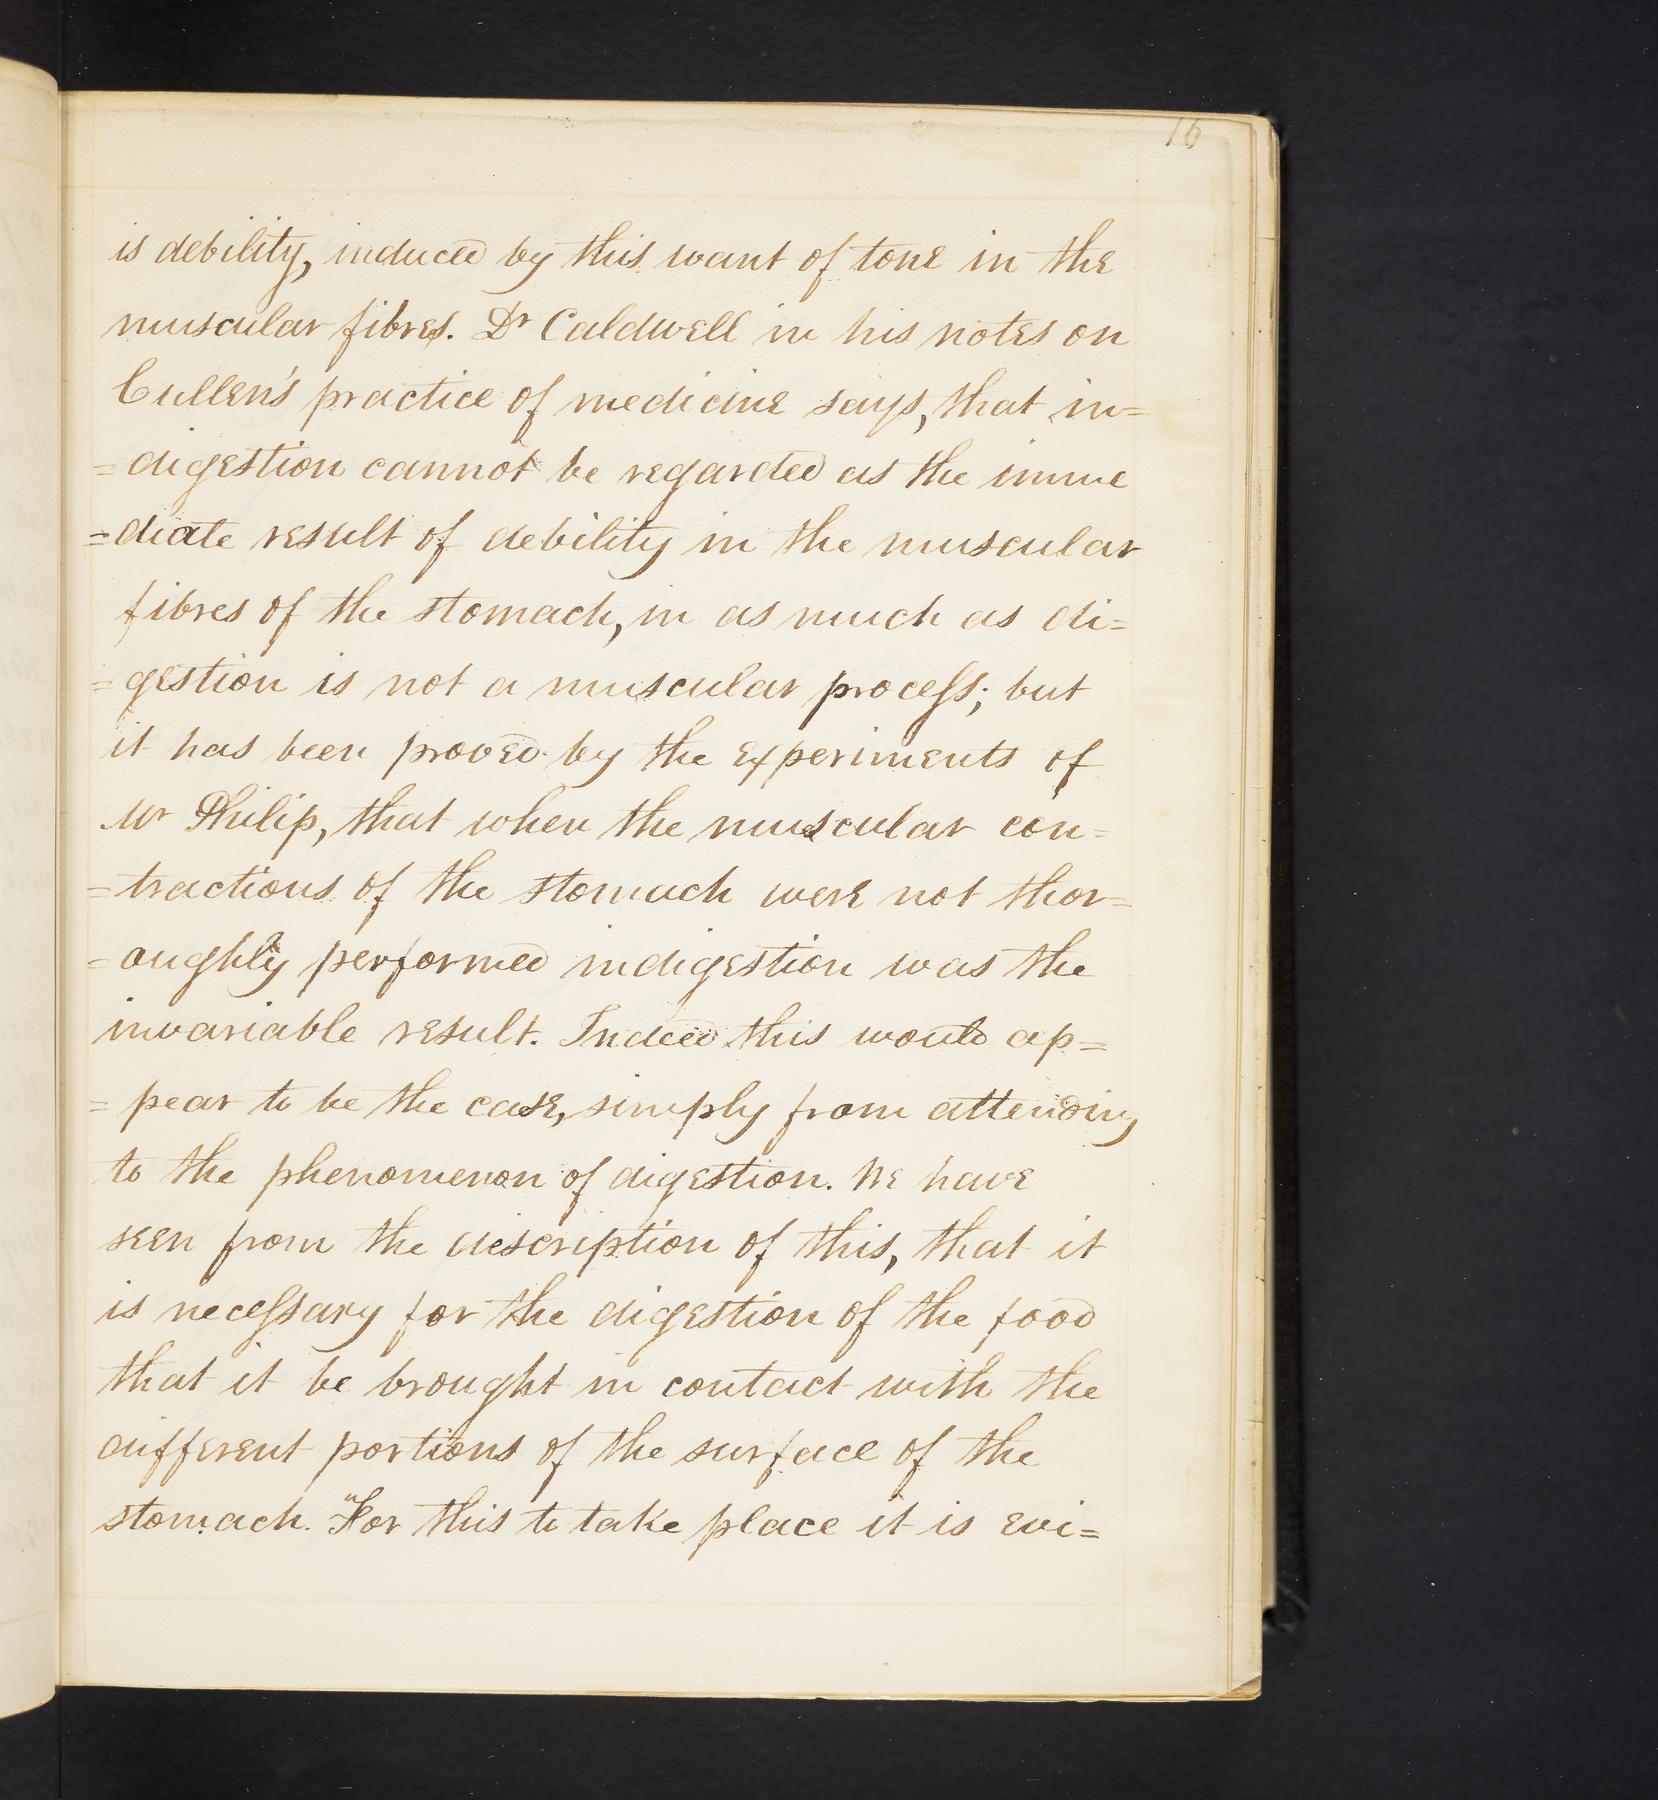 16
is debility, induced by this want of tone in the
muscular fibres. Dr Caldwell in his notes on
Cullen's practice of medicine says, that in=
=digestion cannot be regarded as the imme
=diate result of debility in the muscular
fibres of the stomach, in as much as di=
=gestion is not a muscular process; but
it has been proved by the experiments of
Mr Philip, that when the muscular con=
=tractions of the stomach were not thor=
=oughly performed indigestion was the
invariable result. Indeed this would ap=
=pear to be the case, simply from attending
to the phenomenon of digestion. We have
seen from the description of this, that it
is necessary for the digestion of the food
that it be brought in contact with the
different portions of the surface of the
stomach. "For this to take place it is evi=